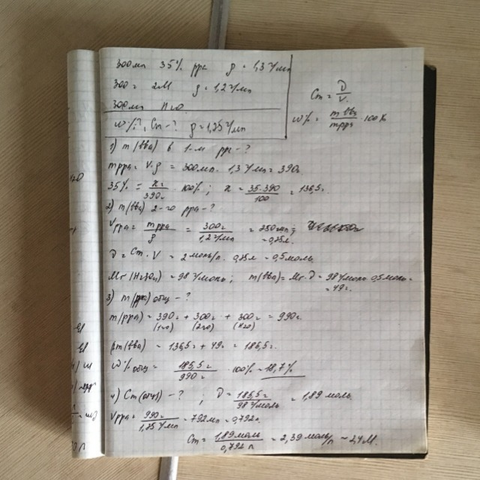 300мл 35% рра ρ = 1,3 г/мл
300г 2M ρ = 1,2 г/мл
300мл H2O
w%?, Cm-? ρ = 1,25 г/мл
Cm = ν/V
w% = m в-ва / m рра · 100%
1) m(в-ва) в 1-м рре-?
m рра = V·ρ = 300мл · 1,3 г/мл = 390г
35% = x г / 390г · 100% ; x = 35·390 / 100 = 136,5г
2) m(в-ва) 2-го рра-?
V рра = m рра / ρ = 300г / 1,2 г/мл = 250мл = 0,25л
ν = Cm · V = 2 моль/л · 0,25л = 0,5моль
Mr (H2SO4) = 98 г/моль ; m(в-ва) = Mr · ν = 98 г/моль · 0,5моль = 49г.
3) m(рра) общ - ?
m(рра) = 390г (1го) + 300г (2го) + 300г (H2O) = 990г.
m(в-ва) = 136,5г + 49г = 185,5г.
w% общ = 185,5г / 990г · 100% = 18,7%
4) Cm(общ) - ? , ν = 185,5г / 98 г/моль = 1,89 моль
V рра = 990г / 1,25 г/мл = 792мл = 0,792л
Cm = 1,89 моль / 0,792 л = 2,39 моль/л ~ 2,4M.